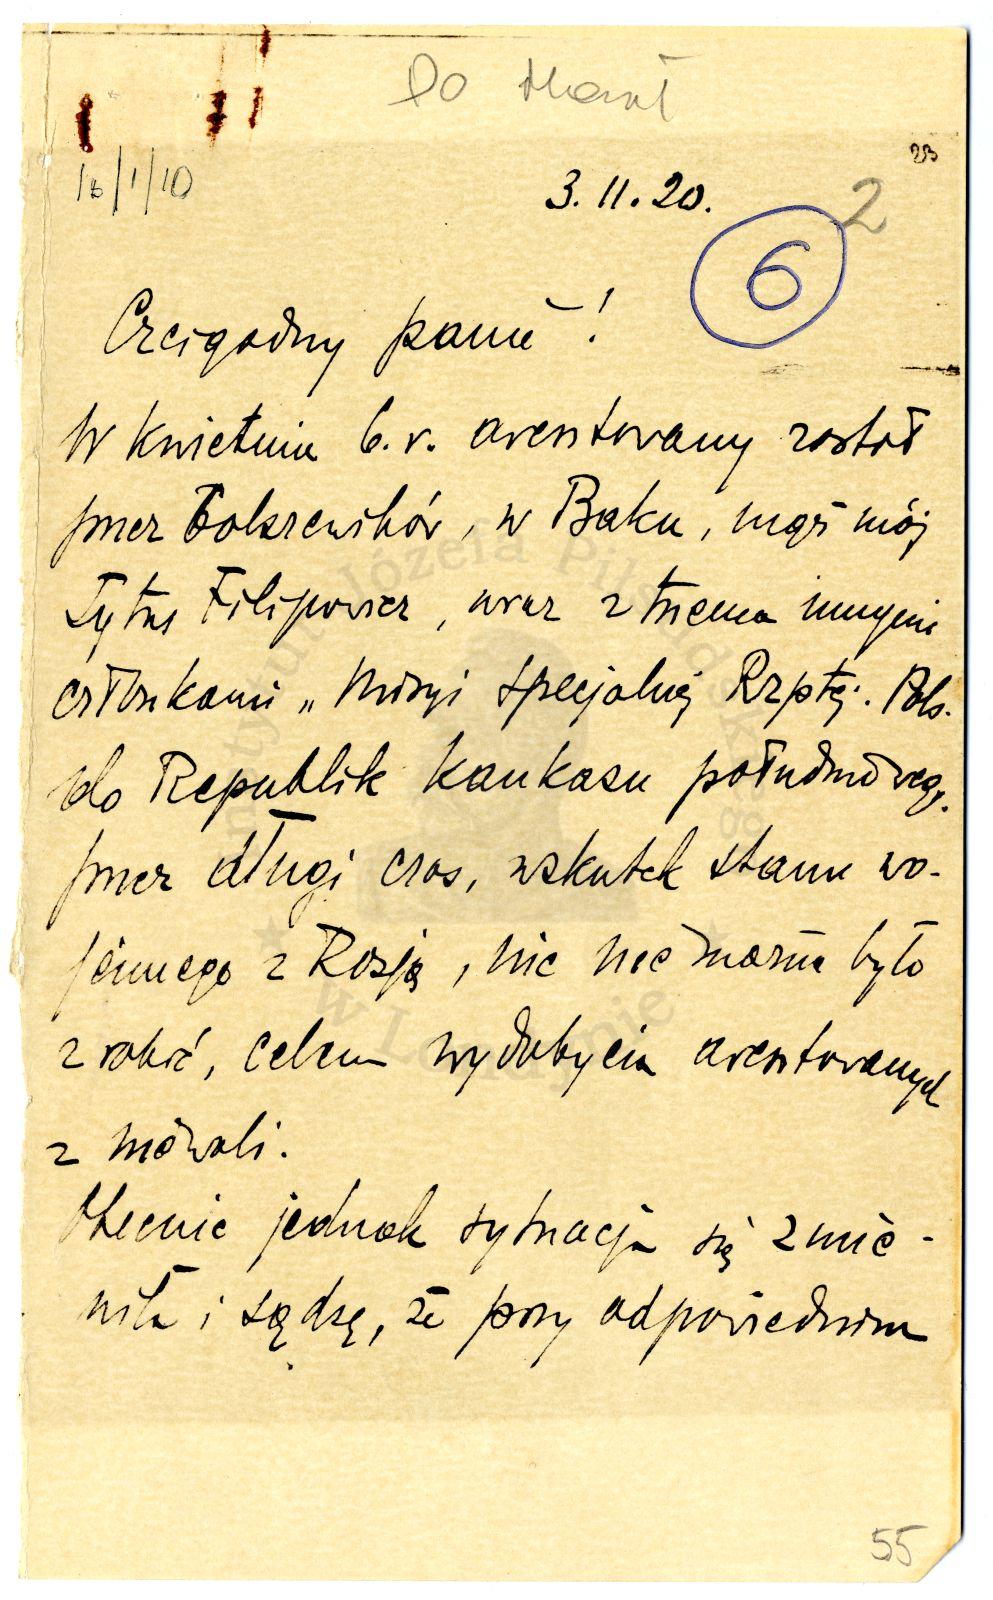 Do
23
16/1/10
3. 11. 20.
2
6
Czcigodny panie!
W kwietniu b.r. aresztowany został
przez bolszewików, w Baku, mąż mój
Tytus Filipowicz, wraz z trzema innymi
członkami „Misyi specjalnej Rzpltej. Pols.
do Republik Kaukasu południowego,
przez długi czas, wskutek stanu wo-
jennego z Rosją, nic nie można było
zrobić, celem wydobycia aresztowanych
z niewoli.
Obecnie jednak sytuacja się zmie-
niła i sądzę, że przy odpowiednim
55
Instytut Józefa Piłsudskiego
w Londynie